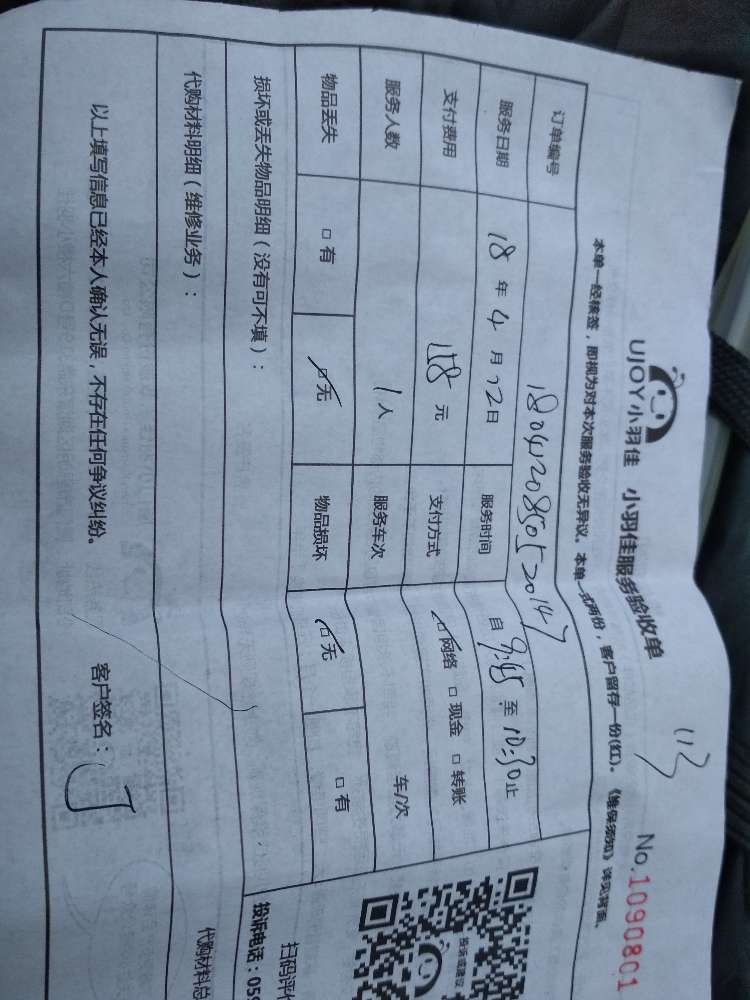 UJOY小羽佳 小羽佳服务验收单
113
No.1090801
本单一经核签，即视为对本次服务验收无异议。本单一式两份，客户留存一份(红)。《维保须知》详见背面。
订单编号 1804120850520147
服务日期 18 年 4 月 12 日 服务时间 自 9:45 至 10:30 止
支付费用 158 元 支付方式 网络 □ 现金 □ 转账
服务人数 1 人 服务车次 车/次
物品丢失 □ 有 □ 无 物品损坏 □ 无 □ 有
损坏或丢失物品明细（没有可不填）：
代购材料明细（维修业务）：
代购材料总
以上填写信息已经本人确认无误，不存在任何争议纠纷。 客户签名：
扫码评价
投诉电话：059
投诉或建议